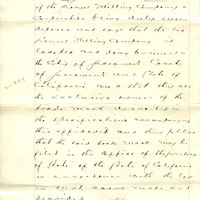 of the Pioneer Milling Company a
Corporation being duly sworn
deposes and says that the said
Pioneer Milling Company is
located and doing business in
the City of Sacramento County
of Sacramento and State of
California and that they are
the exclusive owners of the
trade mark described in
the specifications accompanying
this affidavit and they
the said trade mark may be
filed in the office of the Secretary
of State of the State of California
in accordance with the law
in such cases made and
provided